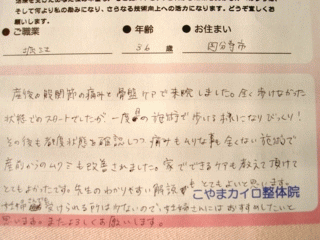 そして何より私の励みになり、さらなる技術向上への活力になります。どうぞ宜しく
●ご職業 ●年齢 ●お住まい
36 歳 国分寺市
産後の股関節の痛みと骨盤ケアで来院しました。全く歩けなかった
状態でのスタートでしたが、一度の施術で歩ける様になりびっくり!
その後も都度状態を確認しつつ痛みもムリな事も全くない施術で
産前からのムクミも改善されました。家でできるケアも教えて頂けて
とてもよかったです。先生のわかりやすい解説もとてもよいと思います。
こやまカイロ整体院
妊婦 受けられる所は少ないので、妊婦さんにはおすすめしたいと
思います。またよろしくお願いします。